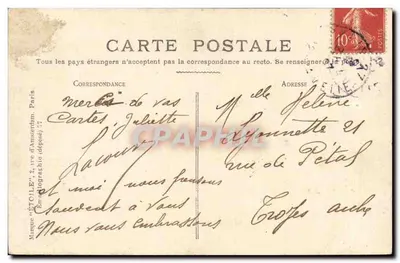 CARTE POSTALE
Tous les pays étrangers n'acceptent pas la correspondance au recto. Se renseigner
CORRESPONDANCE
ADRESSE
merci de vos
Cartes, Juliette
et moi nous pensons
souvent à vous
Nous vous embrassons
Mlle Hélène
Lyonnette 21
rue de Pétal
Troyes aube
Marque "ÉTOILE", rue d'Amsterdam, Paris.
10
CPAPHIL